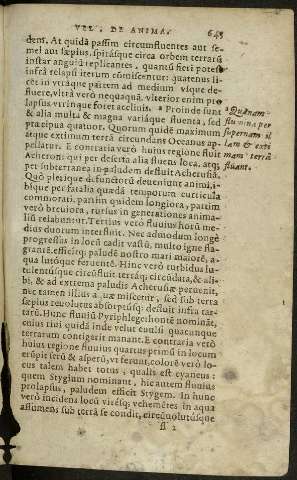 VEL, DE ANIMA. 645
dem. At quidã passim circumfluentes aut se-
mel aut sæpius, spiratsque circa orbem terrarũ
instar anguiũ replicantes, quantũ fieri potest
infrà relapsi iterum cõmiscentur: quatenus li-
cet in vtráque partem ad medium vsque de-
fluere, vltrà verò nequaquã. vlterior enim pro
lapsus vtrinque foret acclivis. Proinde sunt
& alia multa & magna variáque fluenta, sed
præcipua quatuor. Quorum quidẽ maximum
atque extimum terrã circundans Oceanus ap-
pellatur. E contraria verò huius regione fluit
Acheron: qui per deserta alia fluens loca, atq;
per subterranea in paludem desluit Acherusiã.
Quò pleríque defunctorũ deueniunt animi, i-
bíque per fatalia quædã temporum curricula
commorati, partim quidem longiora, partim
verò breuiora, rursus in generationes anima-
liũ relabuntur. Tertius verò fluuius horũ me-
dius duorum interfluit. Nec admodum longè
progressus in locũ cadit vastũ, multo igne fla-
grantẽ. efficítq; paludẽ nostro mari maiorẽ, a-
qua lutóque feruentẽ. Hinc verò turbidus lu-
tulentúsque circũfluit terráq; circũdata, & ali-
bi, & ad extrema paludis Acherusiæ peruenit,
nec tamen illius aquæ miscetur, sed sub terra
sæpius reuolutus absorptúsq; desluit infra tar-
tarũ. Hunc fluuiũ Pyriphlegethontẽ nominãt,
cuius riui quidã inde velut euulsi quacunque
terrarum contigerit manant. E contraria verò
huius regione fluuius quartus primũ in locum
erũpit ferũ & asperũ, vt ferunt. colorẽ verò lo-
cus talem habet totus, qualis est cyaneus:
quem Stygium nominant, hic autem fluuius
prolapsus, paludem efficit Stygem. In hunc
verò incidens locũ virésq; vehemẽtes in aqua
assumens sub terrã se condit, circũuolutúsque
ſſ 2
Quænam
flumina per
supernam il-
lam & exti
mam terrã
fluant.